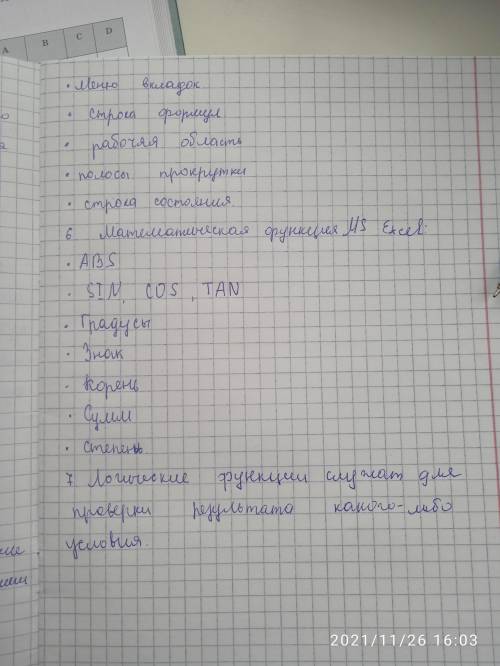 A B C D
• Меню вкладок
• строка формул
• рабочая область
• полосы прокрутки
• строка состояния
6 Математическая функция MS Excel:
• ABS
• SIN, COS, TAN
• Градусы
• Знак
• Корень
• Сумм
• Степень
7 Логические функции служат для
проверки результата какого-либо
условия.
2021/11/26 16:03